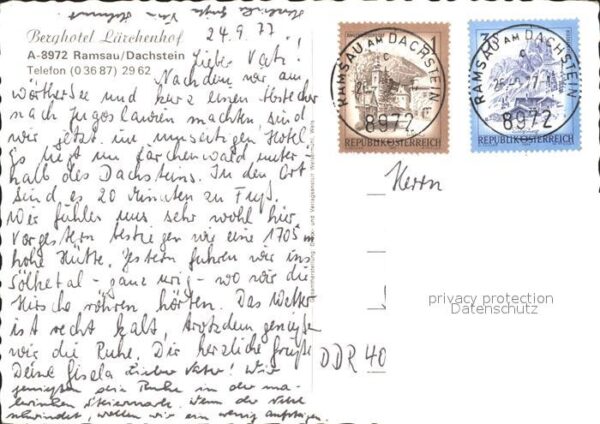 Herzliche Grüße Dein Helmut
24.9.77.
Berghotel Lärchenhof
A-8972 Ramsau/Dachstein
Telefon (0 36 87) 29 62
Lieber Vati!
Nachdem wir am
Wörthersee und kurz einen Abstecher
nach Jugoslawien machten sind
wir jetzt im umseitigen Hotel.
Es liegt im Lärchenwald unter-
halb des Dachsteins. In den Ort
sind es 20 Minuten zu Fuß.
Wir fühlen uns sehr wohl hier.
Vorgestern bestiegen wir eine 1705 m
hohe Hütte. Gestern fuhren wir ins
Sölketal - ganz urig - wo wir die
Hirsche röhren hörten. Das Wetter
ist recht kalt, trotzdem genießen
wir die Ruhe. Dir herzliche Grüße
Deine Gisela Lieber Vater! Wir
genießen die Ruhe in der ma-
lerischen Steiermark. Wenn der Nebel
schwindet, wollen wir ein wenig aufsteigen.
1
REPUBLIK ÖSTERREICH
RAMSAU AM DACHSTEIN
c
8972
3
REPUBLIK ÖSTERREICH
RAMSAU AM DACHSTEIN
c
8972
Herrn
DDR 40
privacy protection
Datenschutz